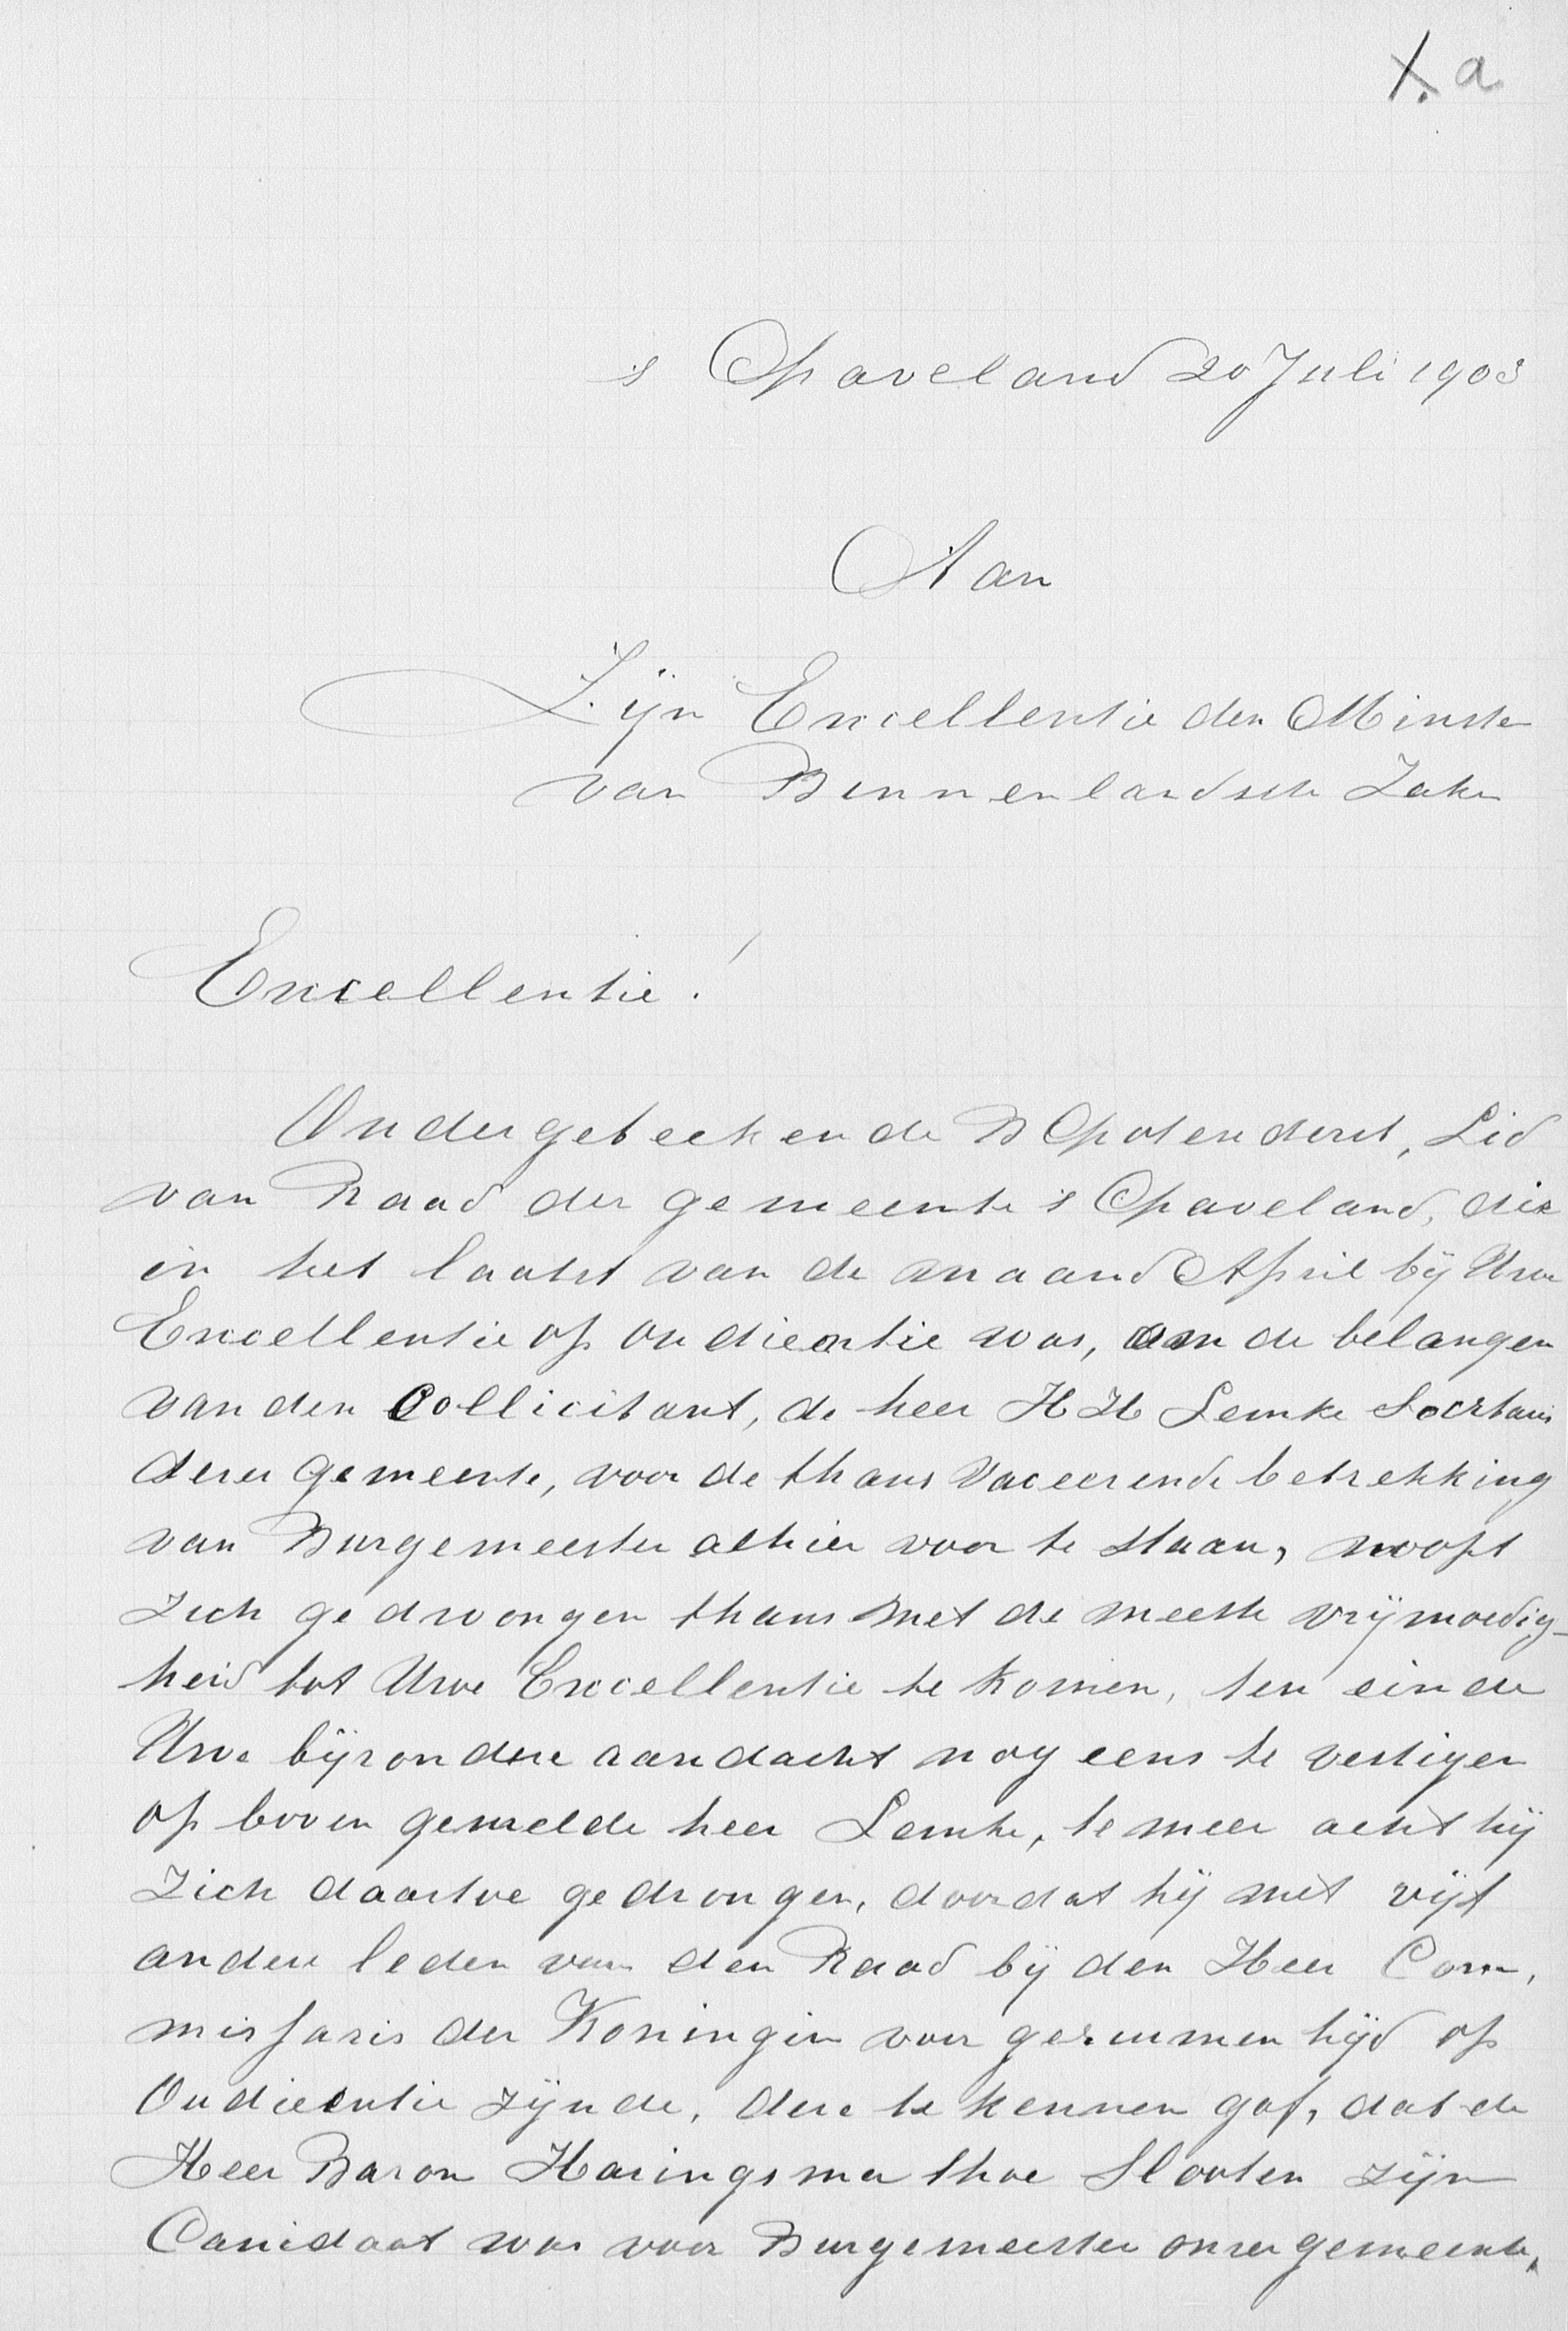 X. a
's Graveland 20 Juli 1903
Aan
Zijn Excellentie den Minster
van Binnenlandsche Zaken
Excellentie!
Ondergeteekende B , Lid
van Raad der gemeente 's Graveland, die
in het laatst van de maand April bij Uwe
Excellentie op audientie was, om de belangen
van den Sollicitant, de heer H H Lemke Secretaris
dezer gemeente, voor de thans vaceerende betrekking
van Burgemeester alhier voor te staan, noopt
zich gedwongen thans met de meeste vrijmoedig-
heid tot Uwe Excellentie te komen, ten einde
Uwe bijzondere aandacht nog eens te vestigen
op boven gemelde heer Lemke, te meer acht hij
zich daartoe gedrongen, doordat hij met vijf
andere leden van den Raad bij den Heer Com,
missaris der Koningin voor geruimen tijd op
Audientie zijnde, deze te kennen gaf, dat de
Heer Baron Haringsma thoe Slooten zijn
Canidaat was voor Burgemeester onzer gemeente,